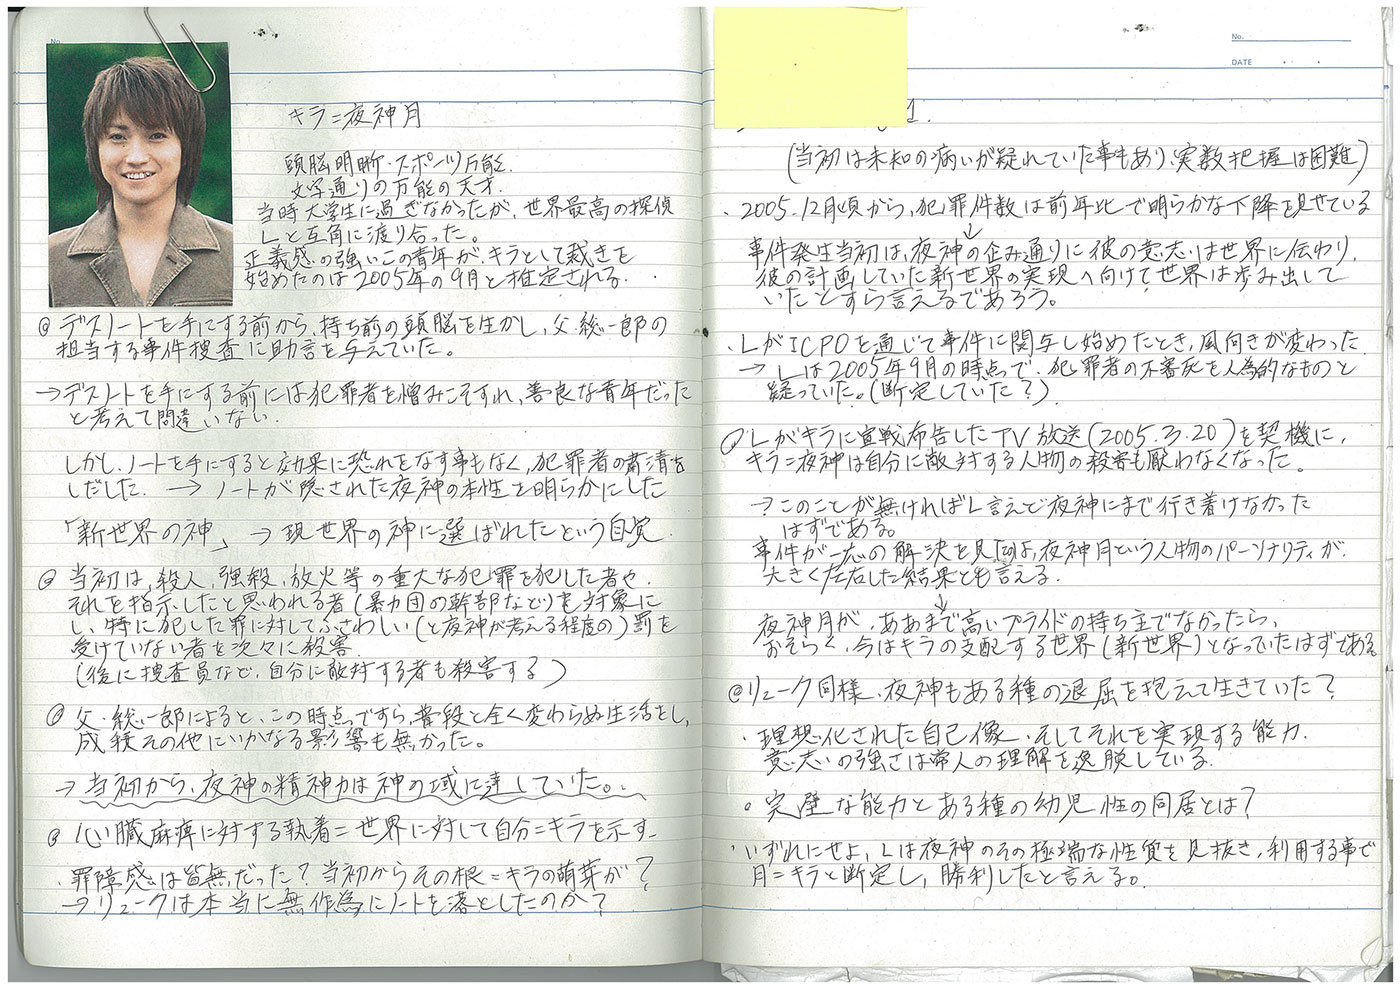 No.
キラ=夜神月
頭脳明晰・スポーツ万能.
文字通りの万能の天才.
当時大学生に過ぎなかったが、世界最高の探偵
Lと互角に渡り合った。
正義感の強いこの青年が、キラとして裁きを
始めたのは2005年の9月と推定される.
@ デスノートを手にする前から、持ち前の頭脳を生かし、父・総一郎の
担当する事件捜査に助言を与えていた。
→デスノートを手にする前には犯罪者を憎みこそすれ、善良な青年だった
と考えて間違いない.
しかし、ノートを手にすると効果に恐れをなす事もなく、犯罪者の粛清を
しだした. → ノートが隠された夜神の本性を明らかにした
「新世界の神」 → 現世界の神に選ばれたという自覚.
@ 当初は、殺人、強殺、放火等の重大な犯罪を犯した者や.
それを指示したと思われる者(暴力団の幹部など)を対象に
し、特に犯した罪に対してふさわしい(と夜神が考える程度の)罰を
受けていない者を次々に殺害.
(後に捜査員など、自分に敵対する者も殺害する)
@ 父・総一郎によると、この時点ですら、普段と全く変わらぬ生活をし、
成績その他にいかなる影響も無かった。
→ 当初から、夜神の精神力は神の域に達していた。
@ 心臓麻痺に対する執着=世界に対して自分=キラを示す_
・罪障感は皆無だった?当初からその根=キラの萌芽が?
→リュークは本当に無作為にノートを落としたのか?
No.
DATE ・ ・
1.
(当初は未知の病いが疑れていた事もあり、実数把握は困難)
・2005.12月頃から、犯罪件数は前年比で明らかな下降を見せている
↓
事件発生当初は、夜神の企み通りに彼の意志は世界に伝わり、
彼の計画していた新世界の実現へ向けて世界は歩み出して
いたとすら言えるであろう。
・LがICPOを通じて事件に関与し始めたとき、風向きが変わった.
→ Lは2005年9月の時点で、犯罪者の不審死を人為的なものと
疑っていた。(断定していた?)
@ Lがキラに宣戦布告したTV放送(2005.3.20)を契機に、
キラ=夜神は自分に敵対する人物の殺害も厭わなくなった。
→このことが無ければL言えど夜神にまで行き着けなかった
はずである。
事件が一応の解決を見たのは、夜神月という人物のパーソナリティが.
大きく左右した結果とも言える.
↓
夜神月が、ああまで高いプライドの持ち主でなかったら、
おそらく、今はキラの支配する世界(新世界)となっていたはずである
@リューク同様、夜神もある種の退屈を抱えて生きていた?
・理想化された自己像、そしてそれを実現する能力.
意志の強さは常人の理解を逸脱している.
・完璧な能力とある種の幼児性の同居とは?
・いずれにせよ、Lは夜神のその極端な性質を見抜き、利用する事で
月=キラと断定し、勝利したと言える。